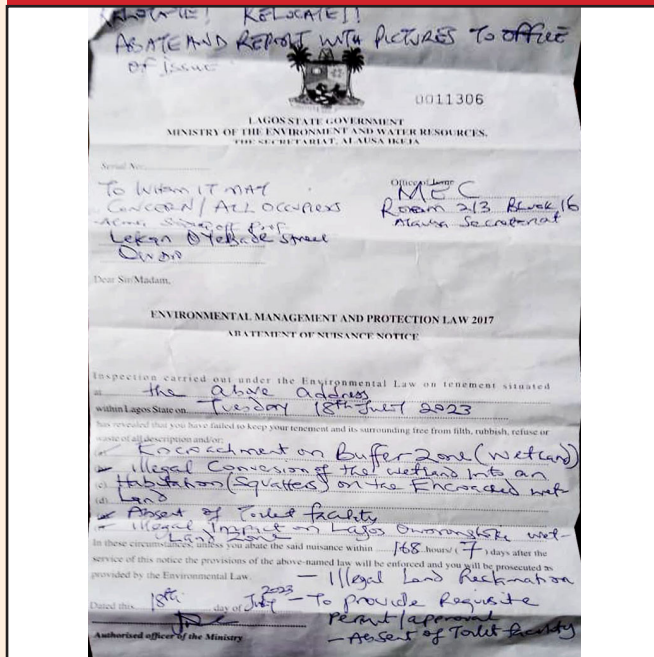 RELOCATE! RELOCATE!!
ABATE AND REPORT WITH PICTURES TO OFFICE
OF ISSUE
0011306
LAGOS STATE GOVERNMENT
MINISTRY OF THE ENVIRONMENT AND WATER RESOURCES.
THE SECRETARIAT, ALAUSA IKEJA
Serial No
Office of Issue
MEC
Room 213 Block 16
Alausa Secretariat
TO WHOM IT MAY
CONCERN / ALL OCCUPIERS
Lekan Oyebade Street
Dear Sir/Madam,
ENVIRONMENTAL MANAGEMENT AND PROTECTION LAW 2017
ABATEMENT OF NUISANCE NOTICE
Inspection carried out under the Environmental Law on tenement situated
at the above address
within Lagos State on Tuesday 18th July 2023
has revealed that you have failed to keep your tenement and its surrounding free from filth, rubbish, refuse or
waste of all description and/or:
Encroachment on Buffer Zone (Wetland)
Illegal Conversion of the wetland into an
(c) Habitation (Squatters) on the Encroached wet-
(d) Land
Absent of Toilet facility
Illegal Impact on Lagos wet-
Land Zone
In these circumstances, unless you abate the said nuisance within 168 hours/ (7) days after the
service of this notice the provisions of the above-named law will be enforced and you will be prosecuted as
provided by the Environmental Law. - Illegal Land Reclamation
Dated this 18th day of July 2023 - To provide Requisite
Permit/approval
Authorised officer of the Ministry - Absent of Toilet facility